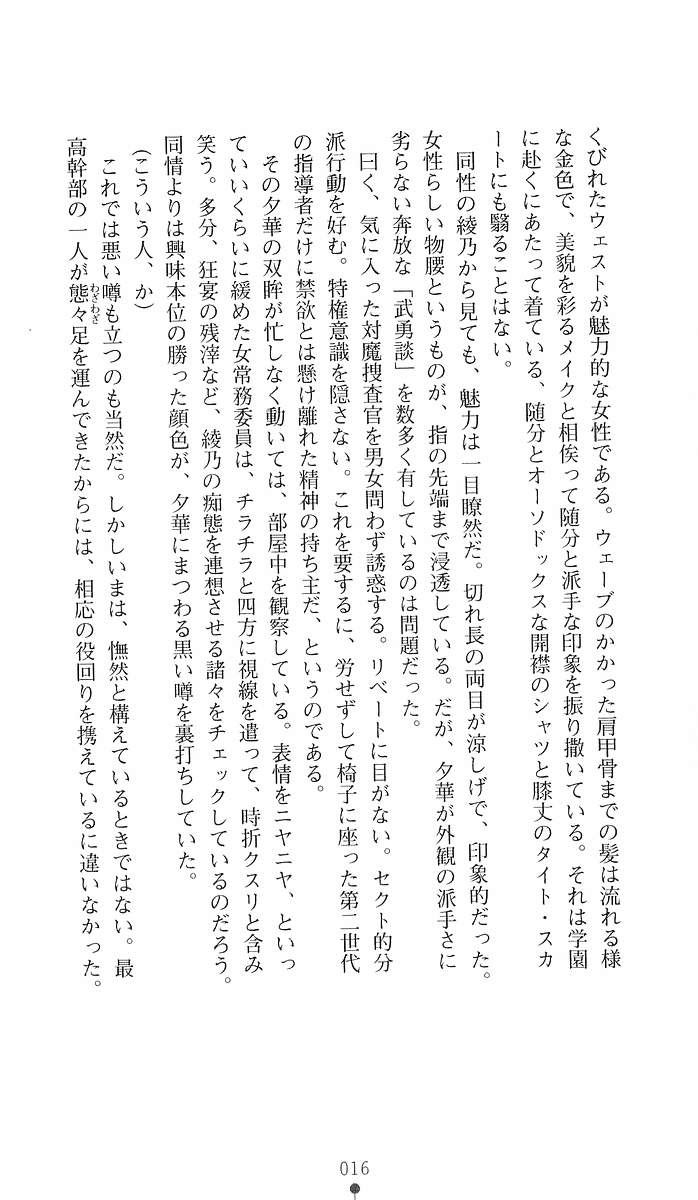 くびれたウェストが魅力的な女性である。ウェーブのかかった肩甲骨までの髪は流れる様
な金色で、美貌を彩るメイクと相俟って随分と派手な印象を振り撒いている。それは学園
に赴くにあたって着ている、随分とオーソドックスな開襟のシャツと膝丈のタイト・スカ
ートにも翳ることはない。
同性の綾乃から見ても、魅力は一目瞭然だ。切れ長の両目が涼しげで、印象的だった。
女性らしい物腰というものが、指の先端まで浸透している。だが、夕華が外観の派手さに
劣らない奔放な「武勇談」を数多く有しているのは問題だった。
曰く、気に入った対魔捜査官を男女問わず誘惑する。リベートに目がない。セクト的分
派行動を好む。特権意識を隠さない。これを要するに、労せずして椅子に座った第二世代
の指導者だけに禁欲とは懸け離れた精神の持ち主だ、というのである。
その夕華の双眸が忙しなく動いては、部屋中を観察している。表情をニヤニヤ、といっ
ていいくらいに緩めた女常務委員は、チラチラと四方に視線を遣って、時折クスリと含み
笑う。多分、狂宴の残滓など、綾乃の痴態を連想させる諸々をチェックしているのだろう。
同情よりは興味本位の勝った顔色が、夕華にまつわる黒い噂を裏打ちしていた。
（こういう人、か）
これでは悪い噂も立つのも当然だ。しかしいまは、憮然と構えているときではない。最
高幹部の一人が態々足を運んできたからには、相応の役回りを携えているに違いなかった。
わざわざ
016